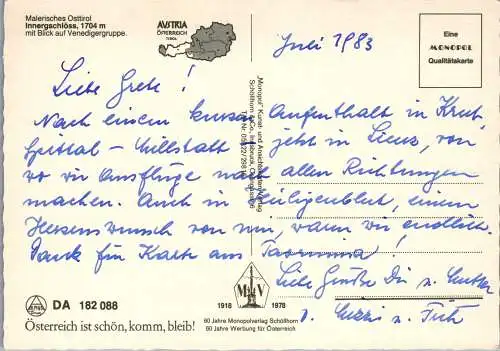 Malerisches Osttirol
Innergschlöss, 1704 m
mit Blick auf Venedigergruppe.
AUSTRIA
ÖSTERREICH
TIROL
Eine
MONOPOL
Qualitätskarte
Juli 1983
Liebe Grete!
Nach einem kurzen Aufenthalt in
Spittal - Millstatt jetzt in Lienz, von
wo wir Ausflüge nach allen Richtungen
machen. Auch in Heiligenblut, einem
Herzenswunsch von mir, waren wir endlich.
Dank für Karte aus Taormina!
Liebe Grüße Dir u. Mutter
u.
"Monopol" Kunst- und Ansichtskartenverlag
Schöllhorn & Co., Innsbruck,
DA 182 088
Österreich ist schön, komm, bleib!
MV
1918 1978
60 Jahre Monopolverlag Schöllhorn
60 Jahre Werbung für Österreich